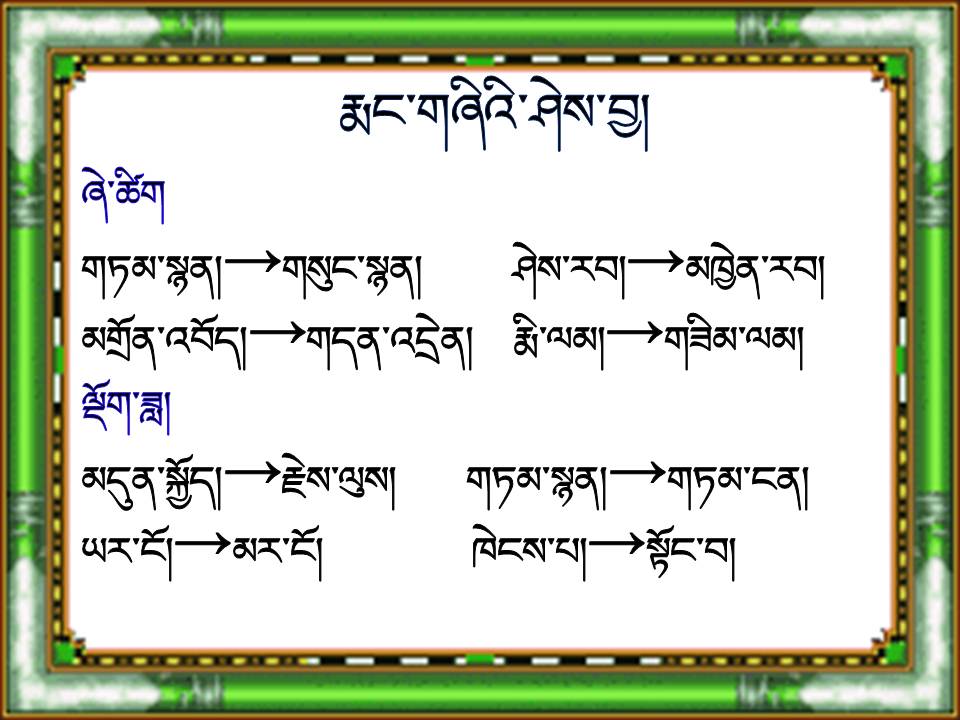 རྨང་གཞིའི་ཤེས་བྱ།
ཞེ་ཚིག
གཏམ་སྙན།→གསུང་སྙན། ཤེས་རབ།→མཁྱེན་རབ།
མགྲོན་འབོད།→གདན་འདྲེན། རྨི་ལམ།→གཟིམ་ལམ།
ལྡོག་ཟླ།
མདུན་སྐྱོད།→རྗེས་ལུས། གཏམ་སྙན།→གཏམ་ངན།
ཡར་ངོ།→མར་ངོ། ཁེངས་པ།→སྟོང་བ།